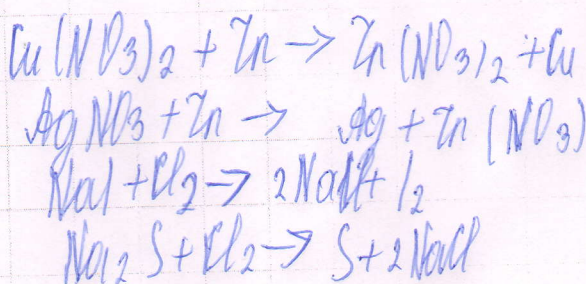 Cu(NO3)2 + Zn → Zn(NO3)2 + Cu
AgNO3 + Zn → Ag + Zn(NO3)
NaI + Cl2 → 2NaCl + I2
Na2S + Cl2 → S + 2NaCl